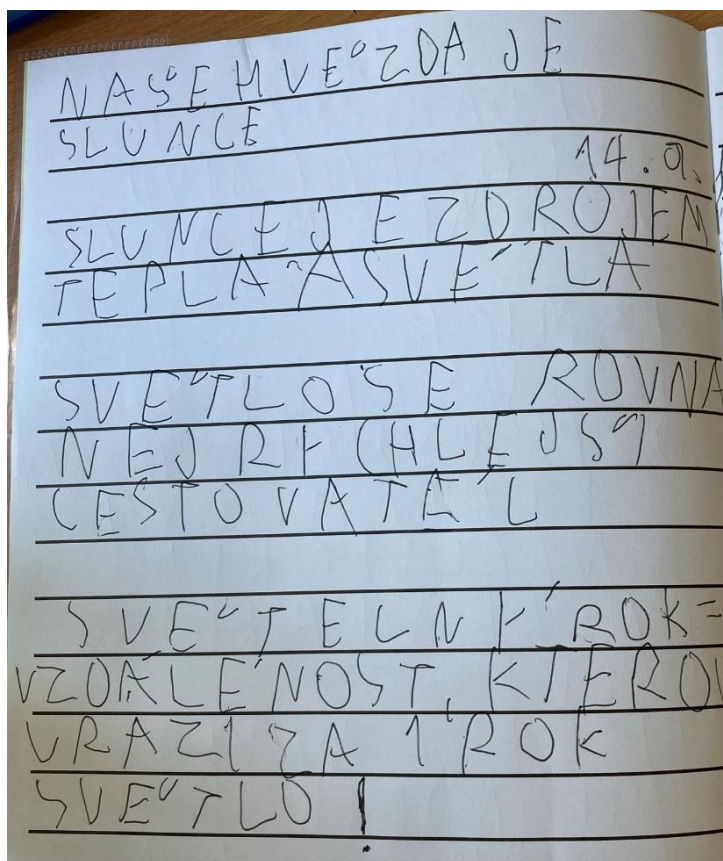 NAŠE HVĚZDA JE
SLUNCE
14.9.
SLUNCE JE ZDROJEM
TEPLA A SVĚTLA
SVĚTLO SE ROVNÁ
NEJRYCHLEJŠÍ
CESTOVATEL
SVĚTELNÝ ROK =
VZDÁLENOST, KTEROU
URAZÍ ZA 1 ROK
SVĚTLO!